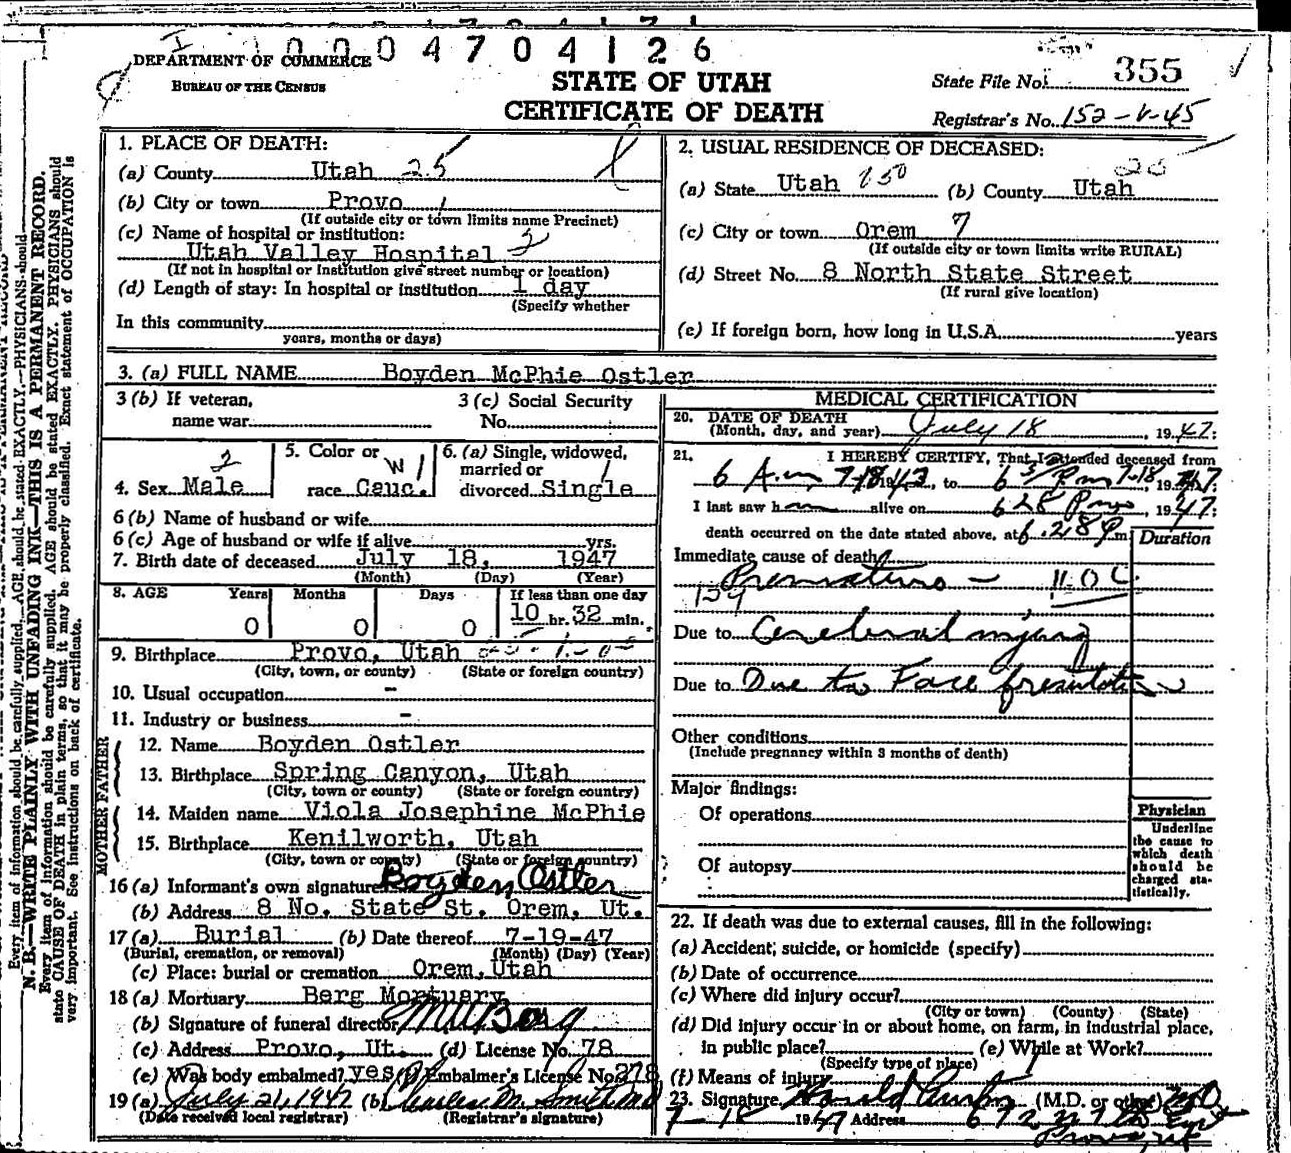 0004704126
DEPARTMENT OF COMMERCE
BUREAU OF THE CENSUS
STATE OF UTAH
CERTIFICATE OF DEATH
State File No. 355
Registrar's No. 152-V-45
1. PLACE OF DEATH:
(a) County Utah 25
(b) City or town Provo
(If outside city or town limits name Precinct)
(c) Name of hospital or institution:
Utah Valley Hospital 2
(If not in hospital or institution give street number or location)
(d) Length of stay: In hospital or institution 1 day
(Specify whether
In this community
years, months or days)
2. USUAL RESIDENCE OF DECEASED:
(a) State Utah (b) County Utah
(c) City or town Orem 7
(If outside city or town limits write RURAL)
(d) Street No. 8 North State Street
(If rural give location)
(e) If foreign born, how long in U.S.A. years
3. (a) FULL NAME Boyden McPhie Ostler
3 (b) If veteran,
name war
3 (c) Social Security
No.
4. Sex Male 2
5. Color or
race Cauc. W
6. (a) Single, widowed,
married or
divorced Single
6 (b) Name of husband or wife
6 (c) Age of husband or wife if alive yrs.
7. Birth date of deceased July 18, 1947
(Month) (Day) (Year)
8. AGE Years Months Days If less than one day
0 0 0 10 hr. 32 min.
9. Birthplace Provo, Utah
(City, town, or county) (State or foreign country)
10. Usual occupation -
11. Industry or business -
FATHER
12. Name Boyden Ostler
13. Birthplace Spring Canyon, Utah
(City, town or county) (State or foreign country)
MOTHER
14. Maiden name Viola Josephine McPhie
15. Birthplace Kenilworth, Utah
(City, town or county) (State or foreign country)
16 (a) Informant's own signature Boyden Ostler
(b) Address 8 No. State St. Orem, Ut.
17 (a) Burial (b) Date thereof 7-19-47
(Burial, cremation, or removal) (Month) (Day) (Year)
(c) Place: burial or cremation Orem, Utah
18 (a) Mortuary Berg Mortuary
(b) Signature of funeral director Berg
(c) Address Provo, Ut. (d) License No. 78
(e) Was body embalmed? yes (f) Embalmer's License No. 278
19 (a) July 21, 1947 (b) Charles M. Smith MD
(Date received local registrar) (Registrar's signature)
MEDICAL CERTIFICATION
20. DATE OF DEATH
(Month, day, and year) July 18, 1947:
21. I HEREBY CERTIFY, That I attended deceased from
6 A.m. to 6 Pm 7-18, 1947
I last saw h alive on 6 28 Pm, 1947:
death occurred on the date stated above, at 6:28 P m
Duration
Immediate cause of death
Premature -
159
Due to Cerebral injury
Due to Due to Face presentation
Other conditions
(Include pregnancy within 3 months of death)
Major findings:
Of operations
Of autopsy
Physician
Underline
the cause to
which death
should be
charged sta-
tistically.
22. If death was due to external causes, fill in the following:
(a) Accident, suicide, or homicide (specify)
(b) Date of occurrence
(c) Where did injury occur?
(City or town) (County) (State)
(d) Did injury occur in or about home, on farm, in industrial place,
in public place? (e) While at Work?
(Specify type of place)
(f) Means of injury
23. Signature Harold (M.D. or other) MD
7-18 1947 Address
Provo, Ut
N. B.—WRITE PLAINLY WITH UNFADING INK—THIS IS A PERMANENT RECORD.
Every item of information should be carefully supplied. AGE should be stated EXACTLY. PHYSICIANS should
state CAUSE OF DEATH in plain terms, so that it may be properly classified. Exact statement of OCCUPATION is
very important. See instructions on back of certificate.